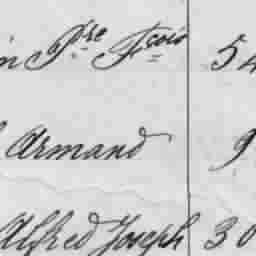 in Pre Fçois 54
Armand 9
Alfred Joseph 30